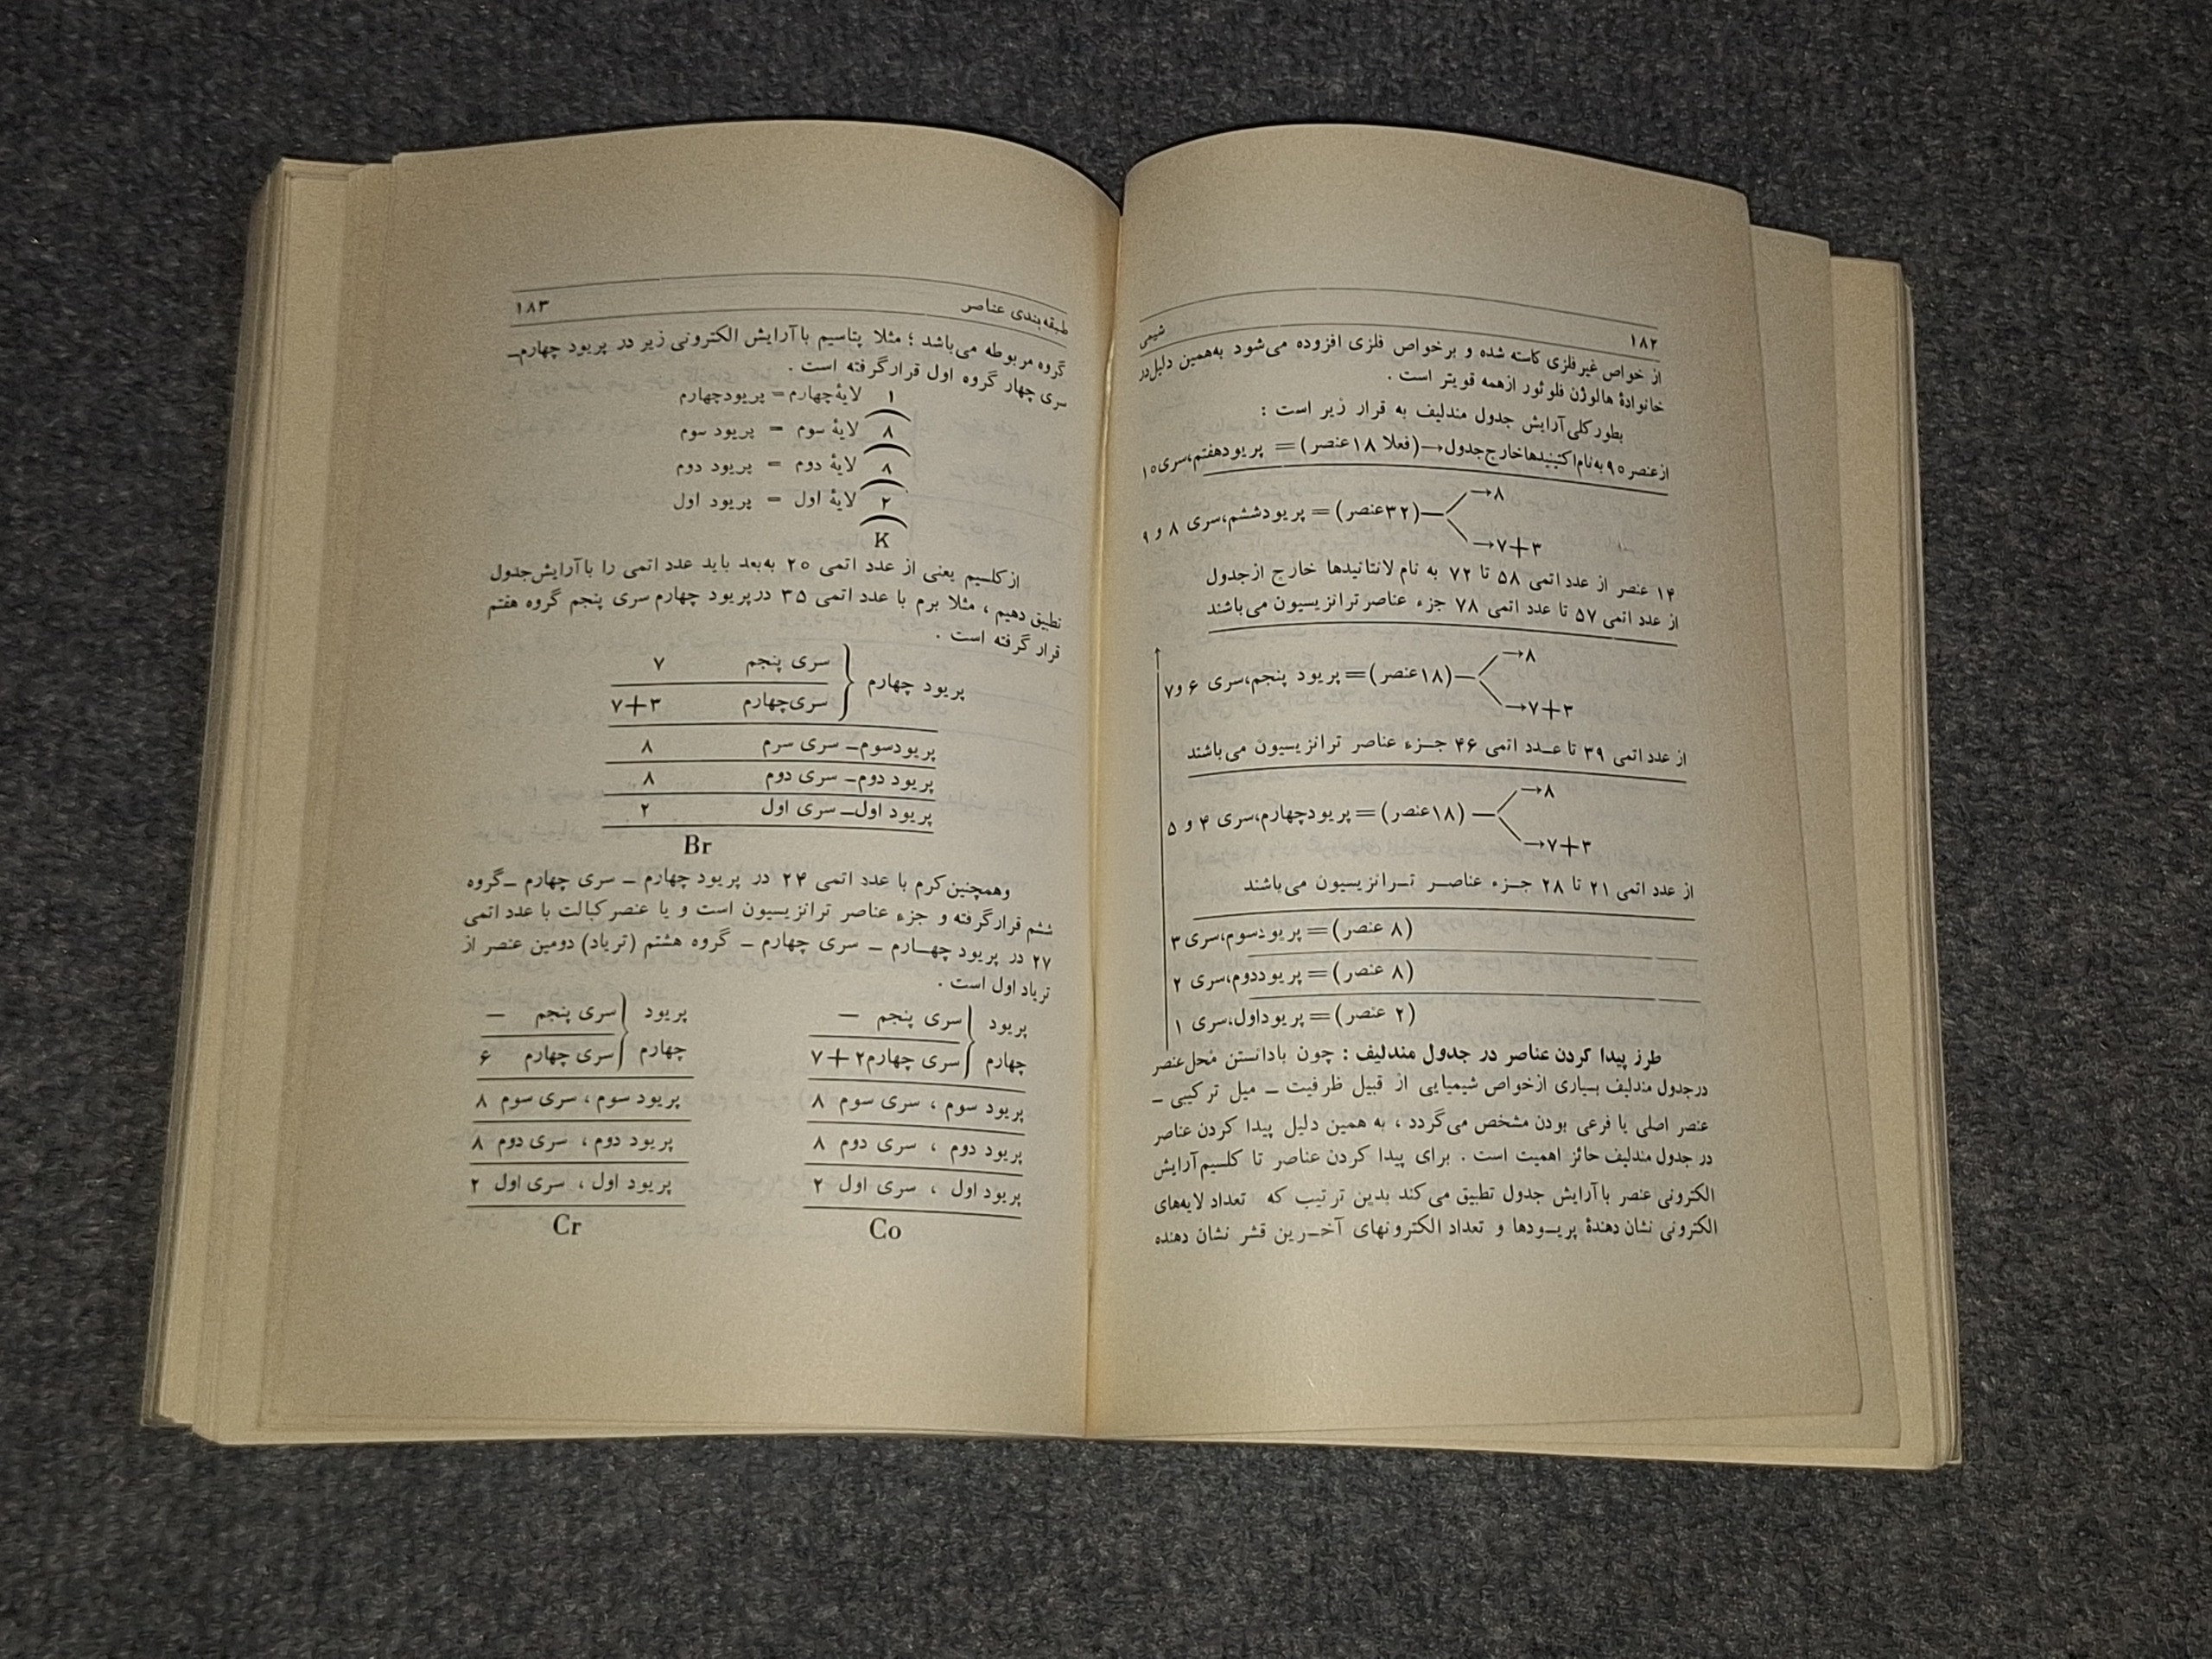 ۱۸۲ شیمی
از خواص غیرفلزی کاسته شده و برخواص فلزی افزوده می‌شود به‌همین دلیل‌در
خانوادهٔ هالوژن فلوئور ازهمه قویتر است .
بطورکلی‌آرایش جدول مندلیف به قرار زیر است :
ازعنصر۹۰به‌نام‌اکتینیدهاخارج‌جدول→(فعلا ۱۸عنصر)= پریودهفتم،سری۱۰
→۸
(۳۲عنصر)=پریودششم،سری ۸ و ۹
→۷+۳
۱۴ عنصر از عدد اتمی ۵۸ تا ۷۲ به نام لانتانیدها خارج ازجدول
از عدد اتمی ۵۷ تا عدد اتمی ۷۸ جزء عناصر ترانزیسیون می‌باشند
→۸
(۱۸عنصر)=پریود پنجم،سری ۶ و۷
→۷+۳
از عدد اتمی ۳۹ تا عـدد اتمی ۴۶ جـزء عناصر ترانزیسیون می‌باشند
→۸
(۱۸عنصر)=پریودچهارم،سری ۴ و ۵
→۷+۳
از عدد اتمی ۲۱ تا ۲۸ جـزء عناصـر تـرانزیسیون می‌باشند
(۸ عنصر)=پریودسوم،سری ۳
(۸ عنصر)=پریوددوم،سری ۲
(۲ عنصر)=پریوداول،سری ۱
طرز پیدا کردن عناصر در جدول مندلیف : چون بادانستن محل‌عنصر
درجدول مندلیف بسیاری ازخواص شیمیایی از قبیل ظرفیت ــ میل ترکیبی ــ
عنصر اصلی یا فرعی بودن مشخص می‌گردد ، به همین دلیل پیدا کردن عناصر
در جدول مندلیف حائز اهمیت است . برای پیدا کردن عناصر تا کلسیم‌آرایش
الکترونی عنصر باآرایش جدول تطبیق می‌کند بدین ترتیب که تعداد لایه‌های
الکترونی نشان دهندهٔ پریـودها و تعداد الکترونهای آخـرین قشر نشان دهنده
طبقه‌بندی عناصر ۱۸۳
گروه مربوطه می‌باشد ؛ مثلا پتاسیم باآرایش الکترونی زیر در پریود چهارم‌ــ
سری چهار گروه اول قرارگرفته است .
۱ لایهٔ‌چهارم= پریودچهارم
۸ لایهٔ سوم = پریود سوم
۸ لایهٔ دوم = پریود دوم
۲ لایهٔ اول = پریود اول
K
ازکلسیم یعنی از عدد اتمی ۲۰ به‌بعد باید عدد اتمی را باآرایش‌جدول
تطبیق دهیم ، مثلا برم با عدد اتمی ۳۵ درپریود چهارم سری پنجم گروه هفتم
قرار گرفته است .
سری پنجم ۷
پریود چهارم
سری‌چهارم ۷+۳
پریودسوم‌ــ سری سرم ۸
پریود دوم‌ــ سری دوم ۸
پریود اول‌ــ سری اول ۲
Br
وهمچنین‌کرم با عدد اتمی ۲۴ در پریود چهارم ــ سری چهارم ــگروه
ششم قرارگرفته و جزء عناصر ترانزیسیون است و یا عنصرکبالت با عدد اتمی
۲۷ در پریود چهـارم ــ سری چهارم ــ گروه هشتم (تریاد) دومین عنصر از
تریاد اول است .
پریود سری پنجم —
چهارم سری چهارم۷+۲
پریود سوم ، سری سوم ۸
پریود دوم ، سری دوم ۸
پریود اول ، سری اول ۲
Co
پریود سری پنجم —
چهارم سری چهارم ۶
پریود سوم ، سری سوم ۸
پریود دوم ، سری دوم ۸
پریود اول ، سری اول ۲
Cr